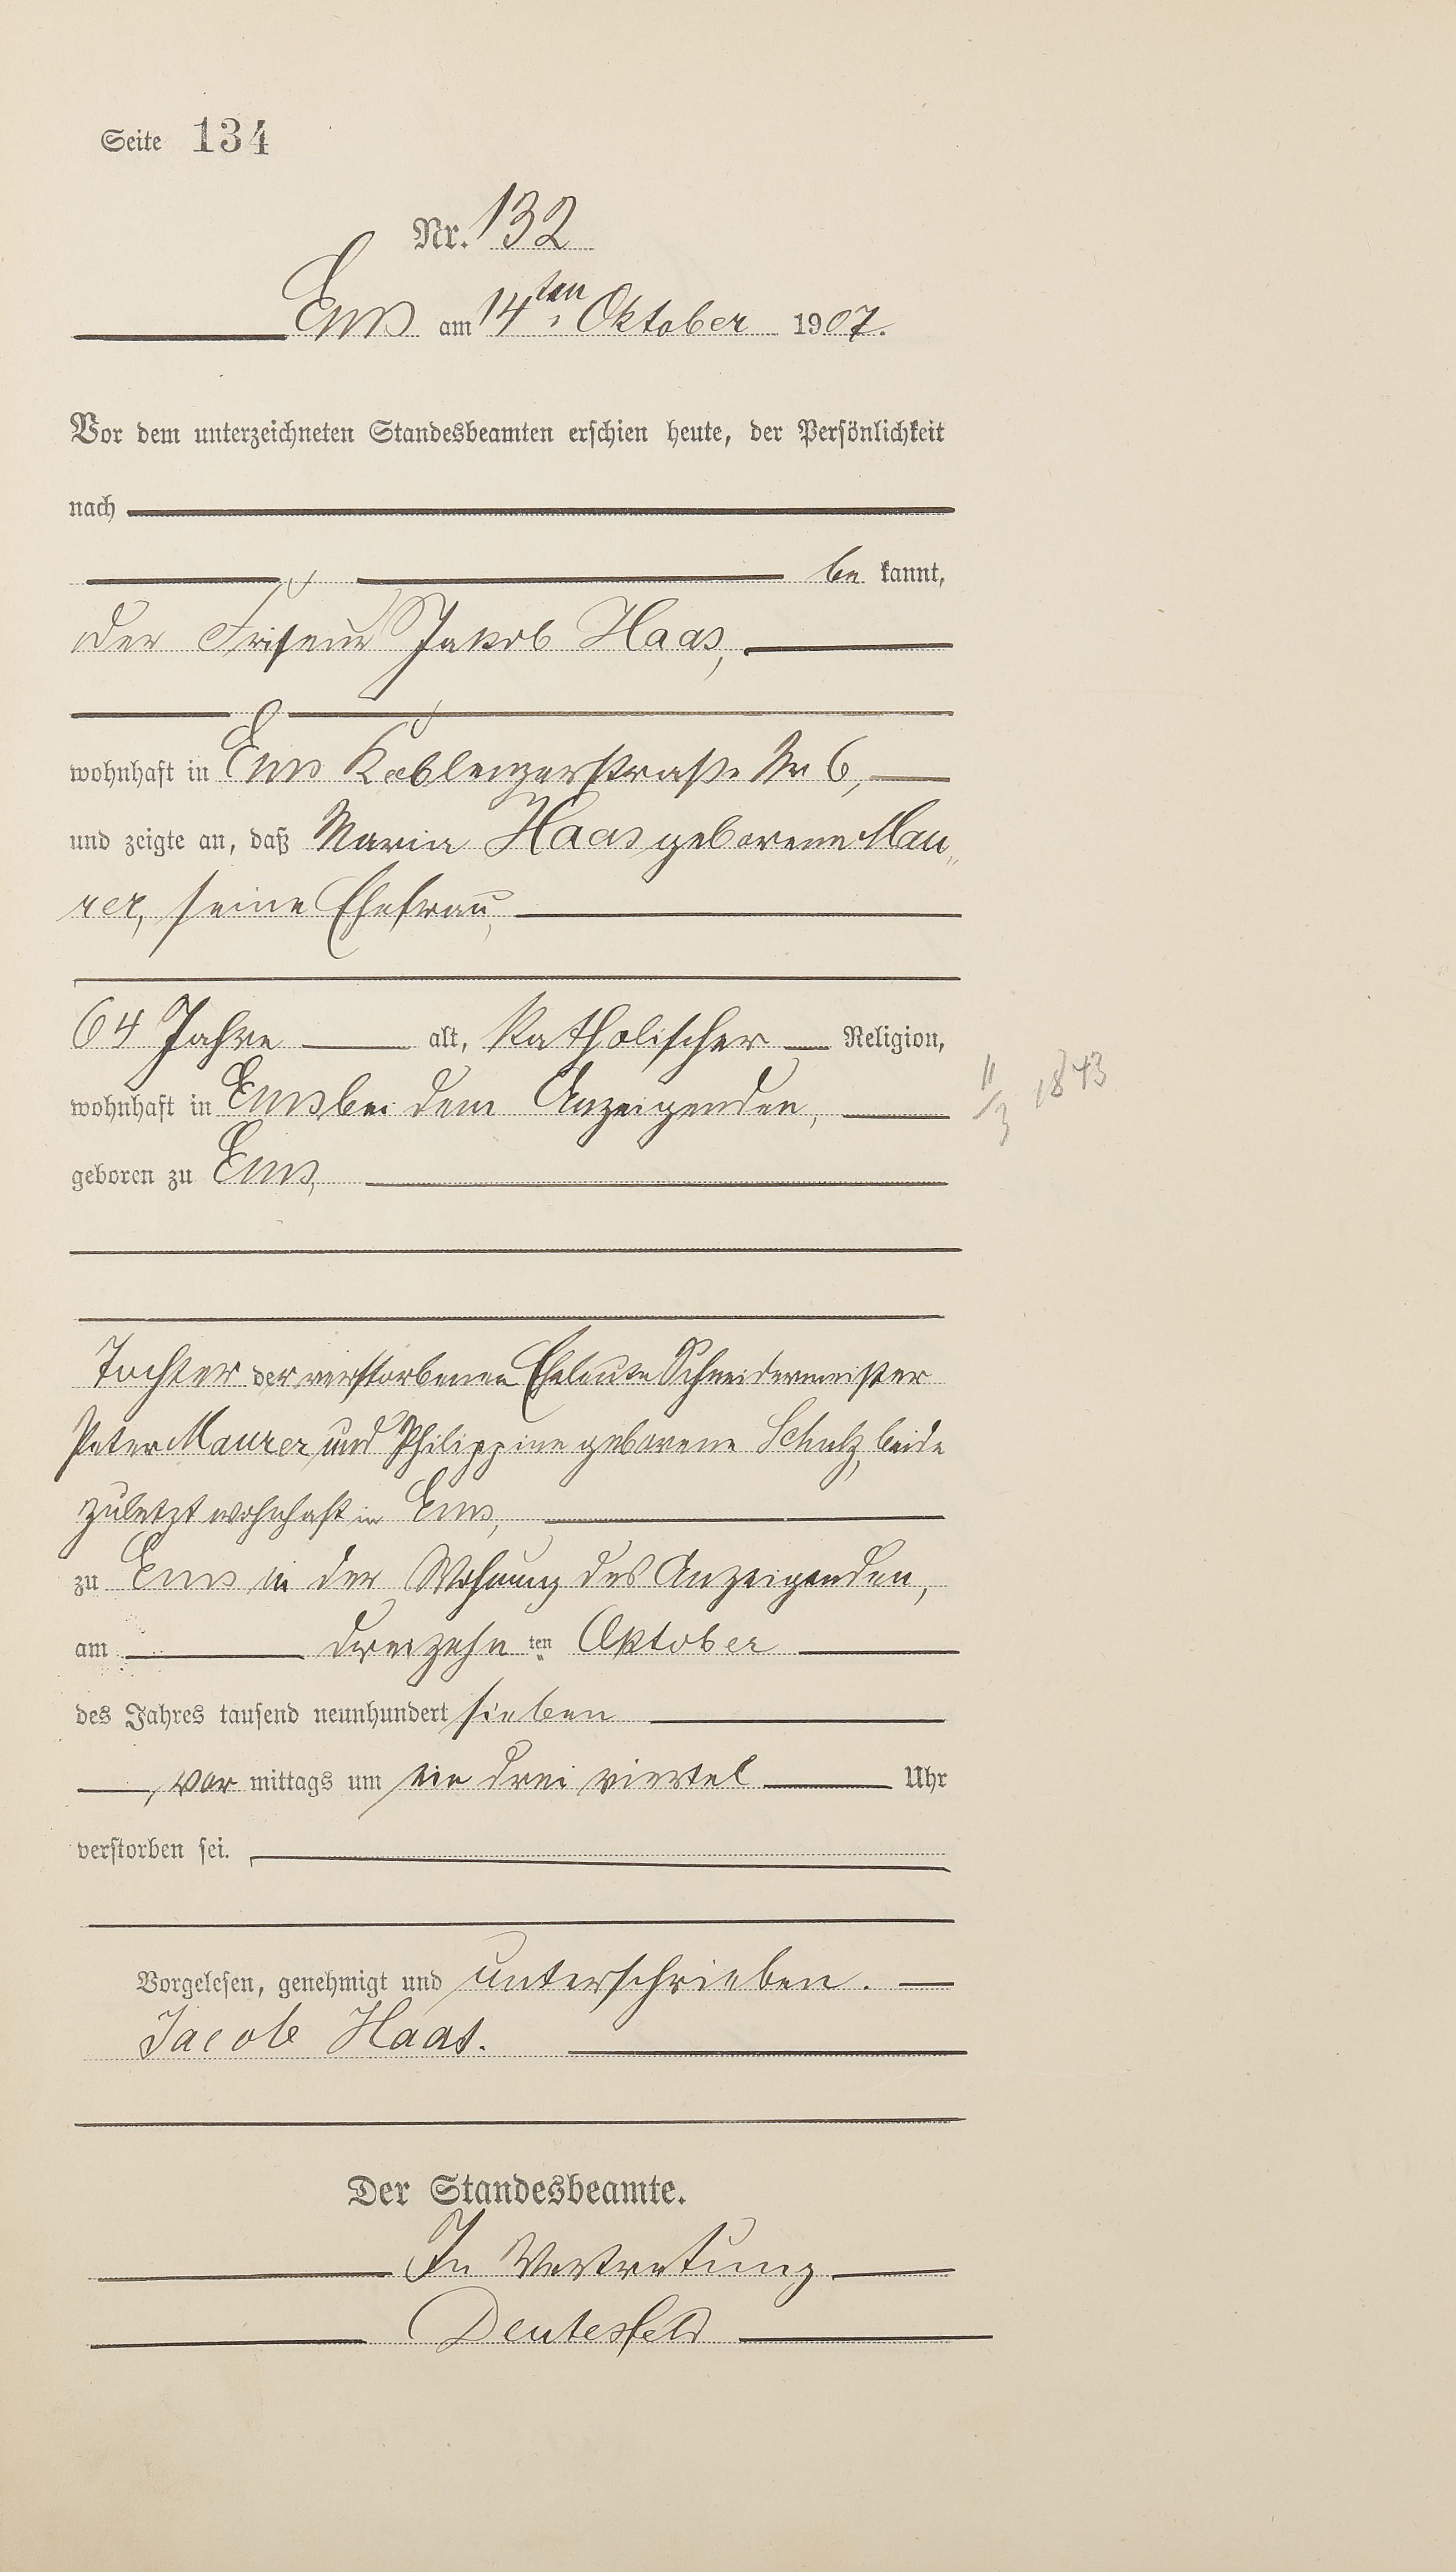 Seite 134
Nr. 132
Ems am 14ten Oktober 1907.
Vor dem unterzeichneten Standesbeamten erschien heute, der Persönlichkeit
nach
be kannt,
der Friseur Jakob Haas,
wohnhaft in Ems Koblenzerstraße Nr 6,
und zeigte an, daß Maria Haas geborene Mau„
rer, seine Ehefrau,
64 Jahre alt, katholischer Religion,
wohnhaft in Ems bei dem Anzeigenden,
11/3 1843
geboren zu Ems,
Tochter der verstorbenen Eheleute Schneidermeister
Peter Maurer und Philippine geborene Schulz, beide
zuletzt wohnhaft in Ems,
zu Ems in der Wohnung des Anzeigenden,
am dreizehn ten Oktober
des Jahres tausend neunhundert sieben
, vor mittags um ein drei viertel Uhr
verstorben sei.
Vorgelesen, genehmigt und unterschrieben.
Jacob Haas.
Der Standesbeamte.
In Vertretung
Deutesfeld